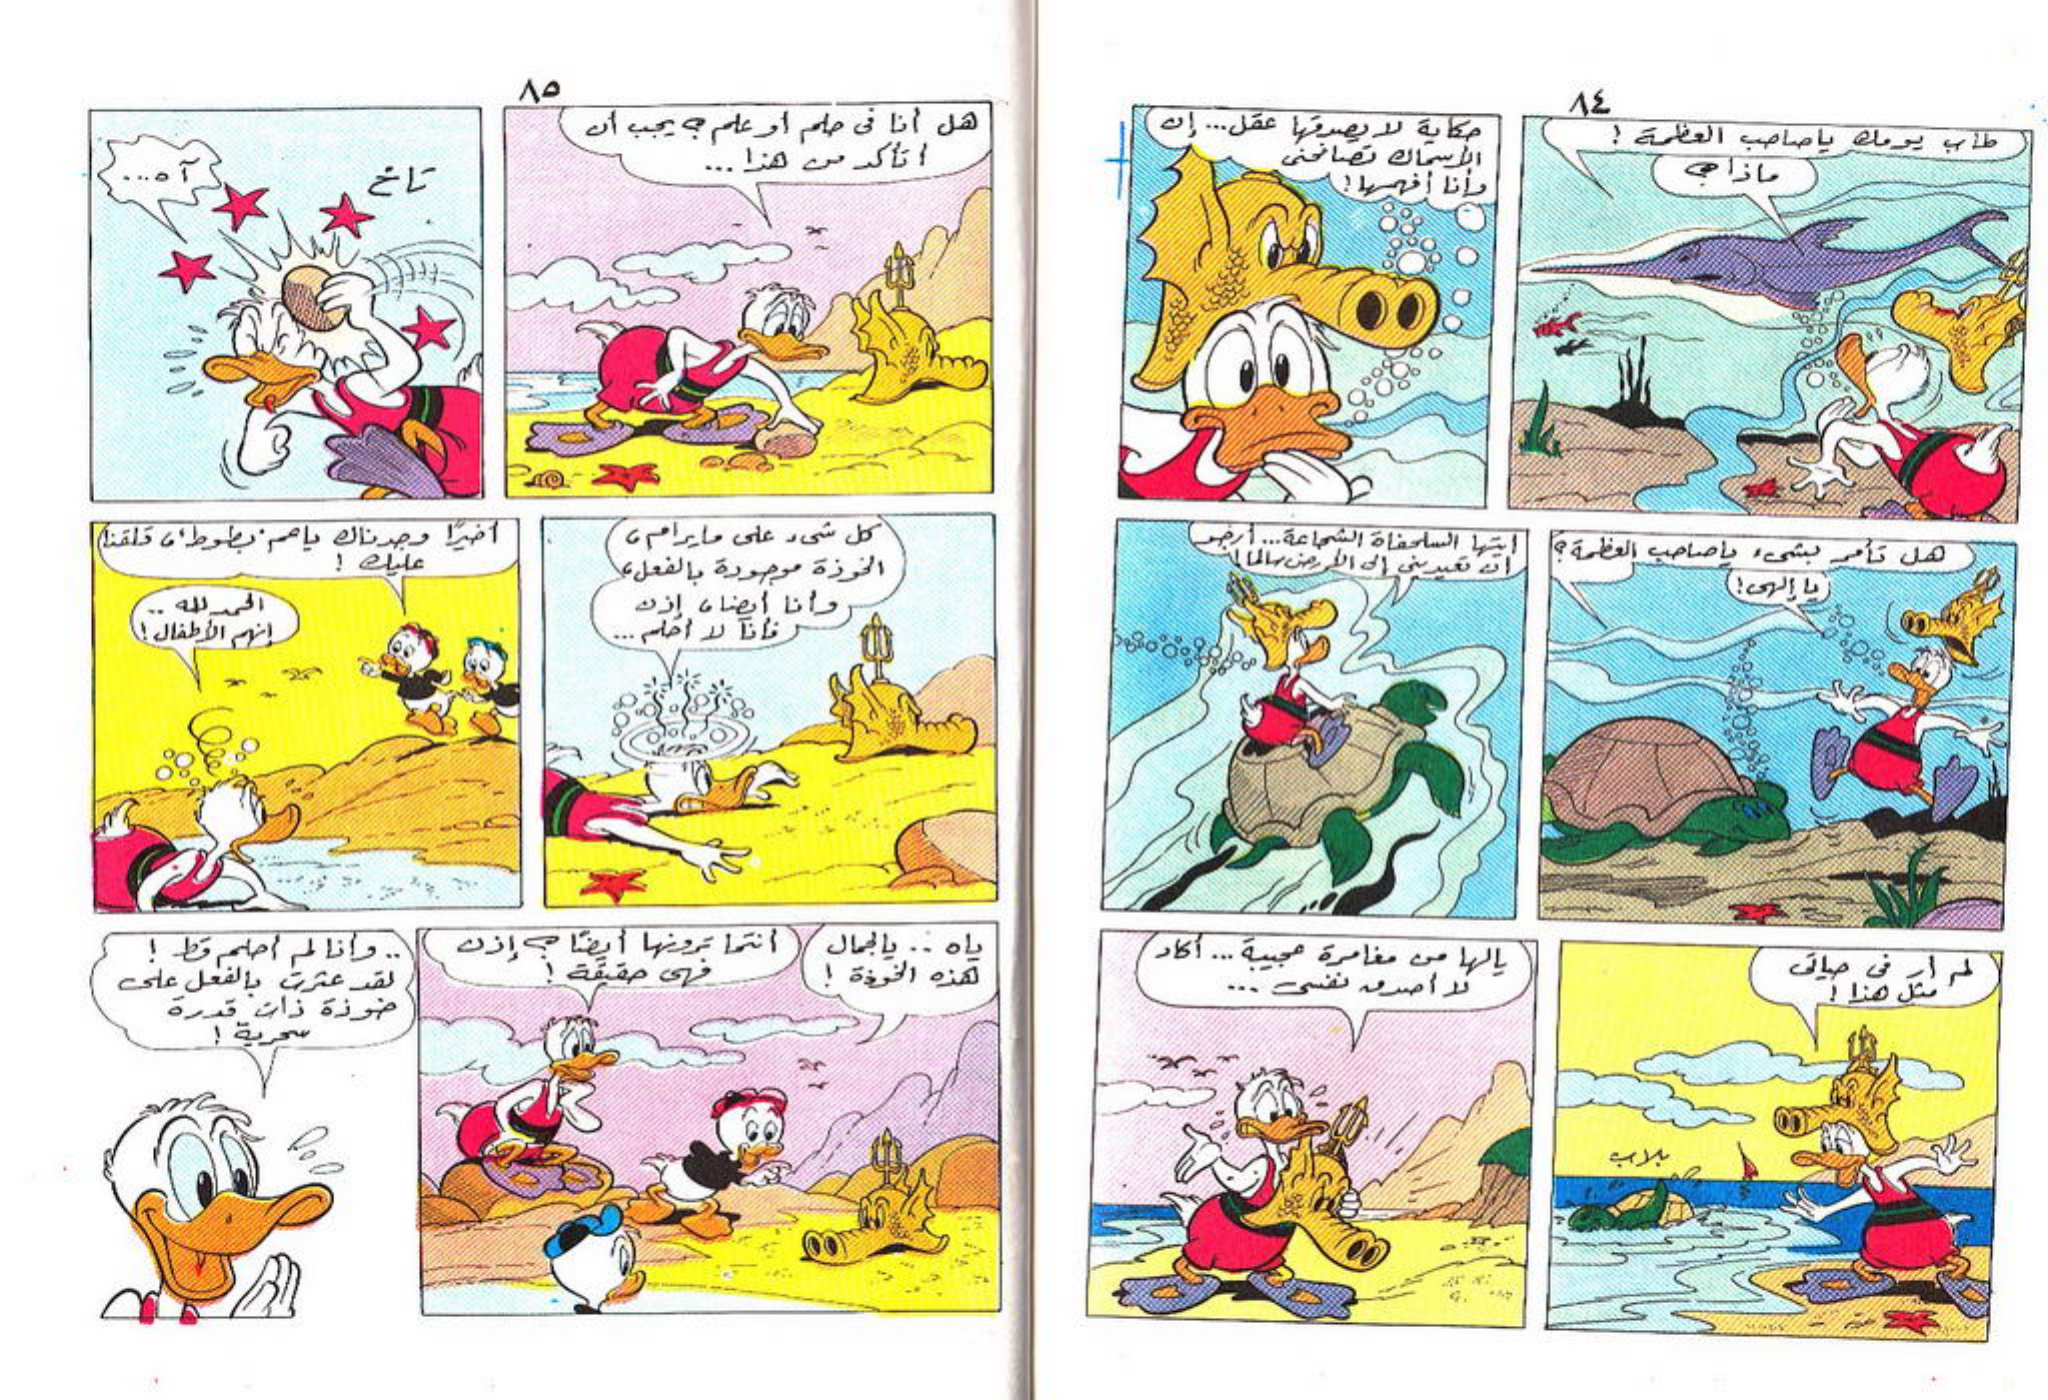 ٨٤
طاب يومك ياصاحب العظمة !
ماذا؟
حكاية لا يصدقها عقل... إن
الأسماك تصافحنى
وأنا أفهمها !
هل تأمر بشىء ياصاحب العظمة ؟
يا إلهى !
أيتها السلحفاة الشجاعة... أرجو
أن تعيدينى إلى الأرض سالما !
لم أر فى حياتى
مثل هذا !
بلاب
يالها من مغامرة عجيبة... أكاد
لا أصدق نفسى ...
٨٥
هل أنا فى حلم أو علم ؟ يجب أن
أتأكد من هذا ...
تاخ
آه...
كل شىء على مايرام ،
الخوذة موجودة بالفعل ،
وأنا أيضا ، إذن
فأنا لا أحلم ...
أخيرًا وجدناك ياعم "بطوط" ، قلقنا
عليك !
الحمد لله ..
إنهم الأطفال !
ياه .. يالجمال
هذه الخوذة !
أنتما ترونها أيضًا ؟ إذن
فهى حقيقة !
.. وأنا لم أحلم قط !
لقد عثرت بالفعل على
خوذة ذات قدرة
سحرية !